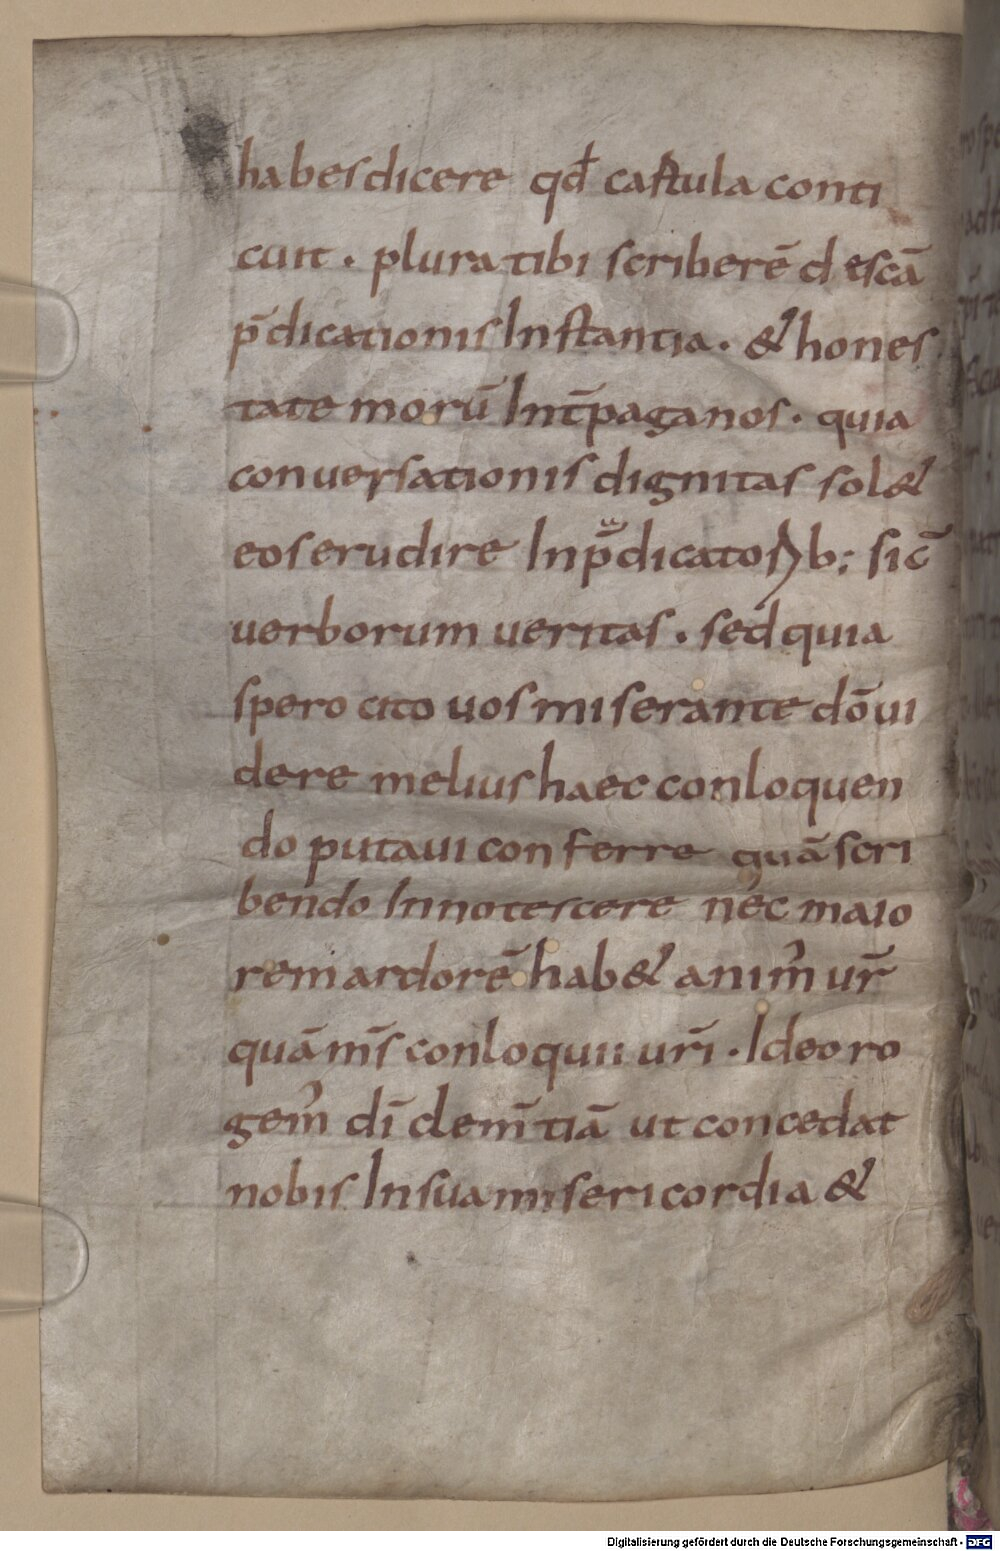 habes dicere qđ castula conti
cuit . plura tibi scriberē de scā
p̄dicationis Instantia . & hones
tate morū Int̄ paganos . quia
conuersationis dignitas sol&
eos erudire In p̄dicatorib; sic̄
uerborum ueritas . sed quia
spero cito uos miserante dō ui
dere melius haec conloquen
do putaui conferre quā scri
bendo Innotescere nec maio
rem ardorē hab& anim̄ ur̄
quā m̄s conloquii ur̄i . Ideo ro
gem̄ dī clem̄tiā ut concedat
nobis In sua misericordia &
Digitalisierung gefördert durch die Deutsche Forschungsgemeinschaft - DFG